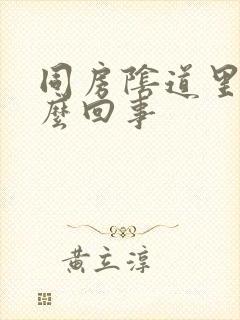 同房陰道里
麽回事
黄立淳